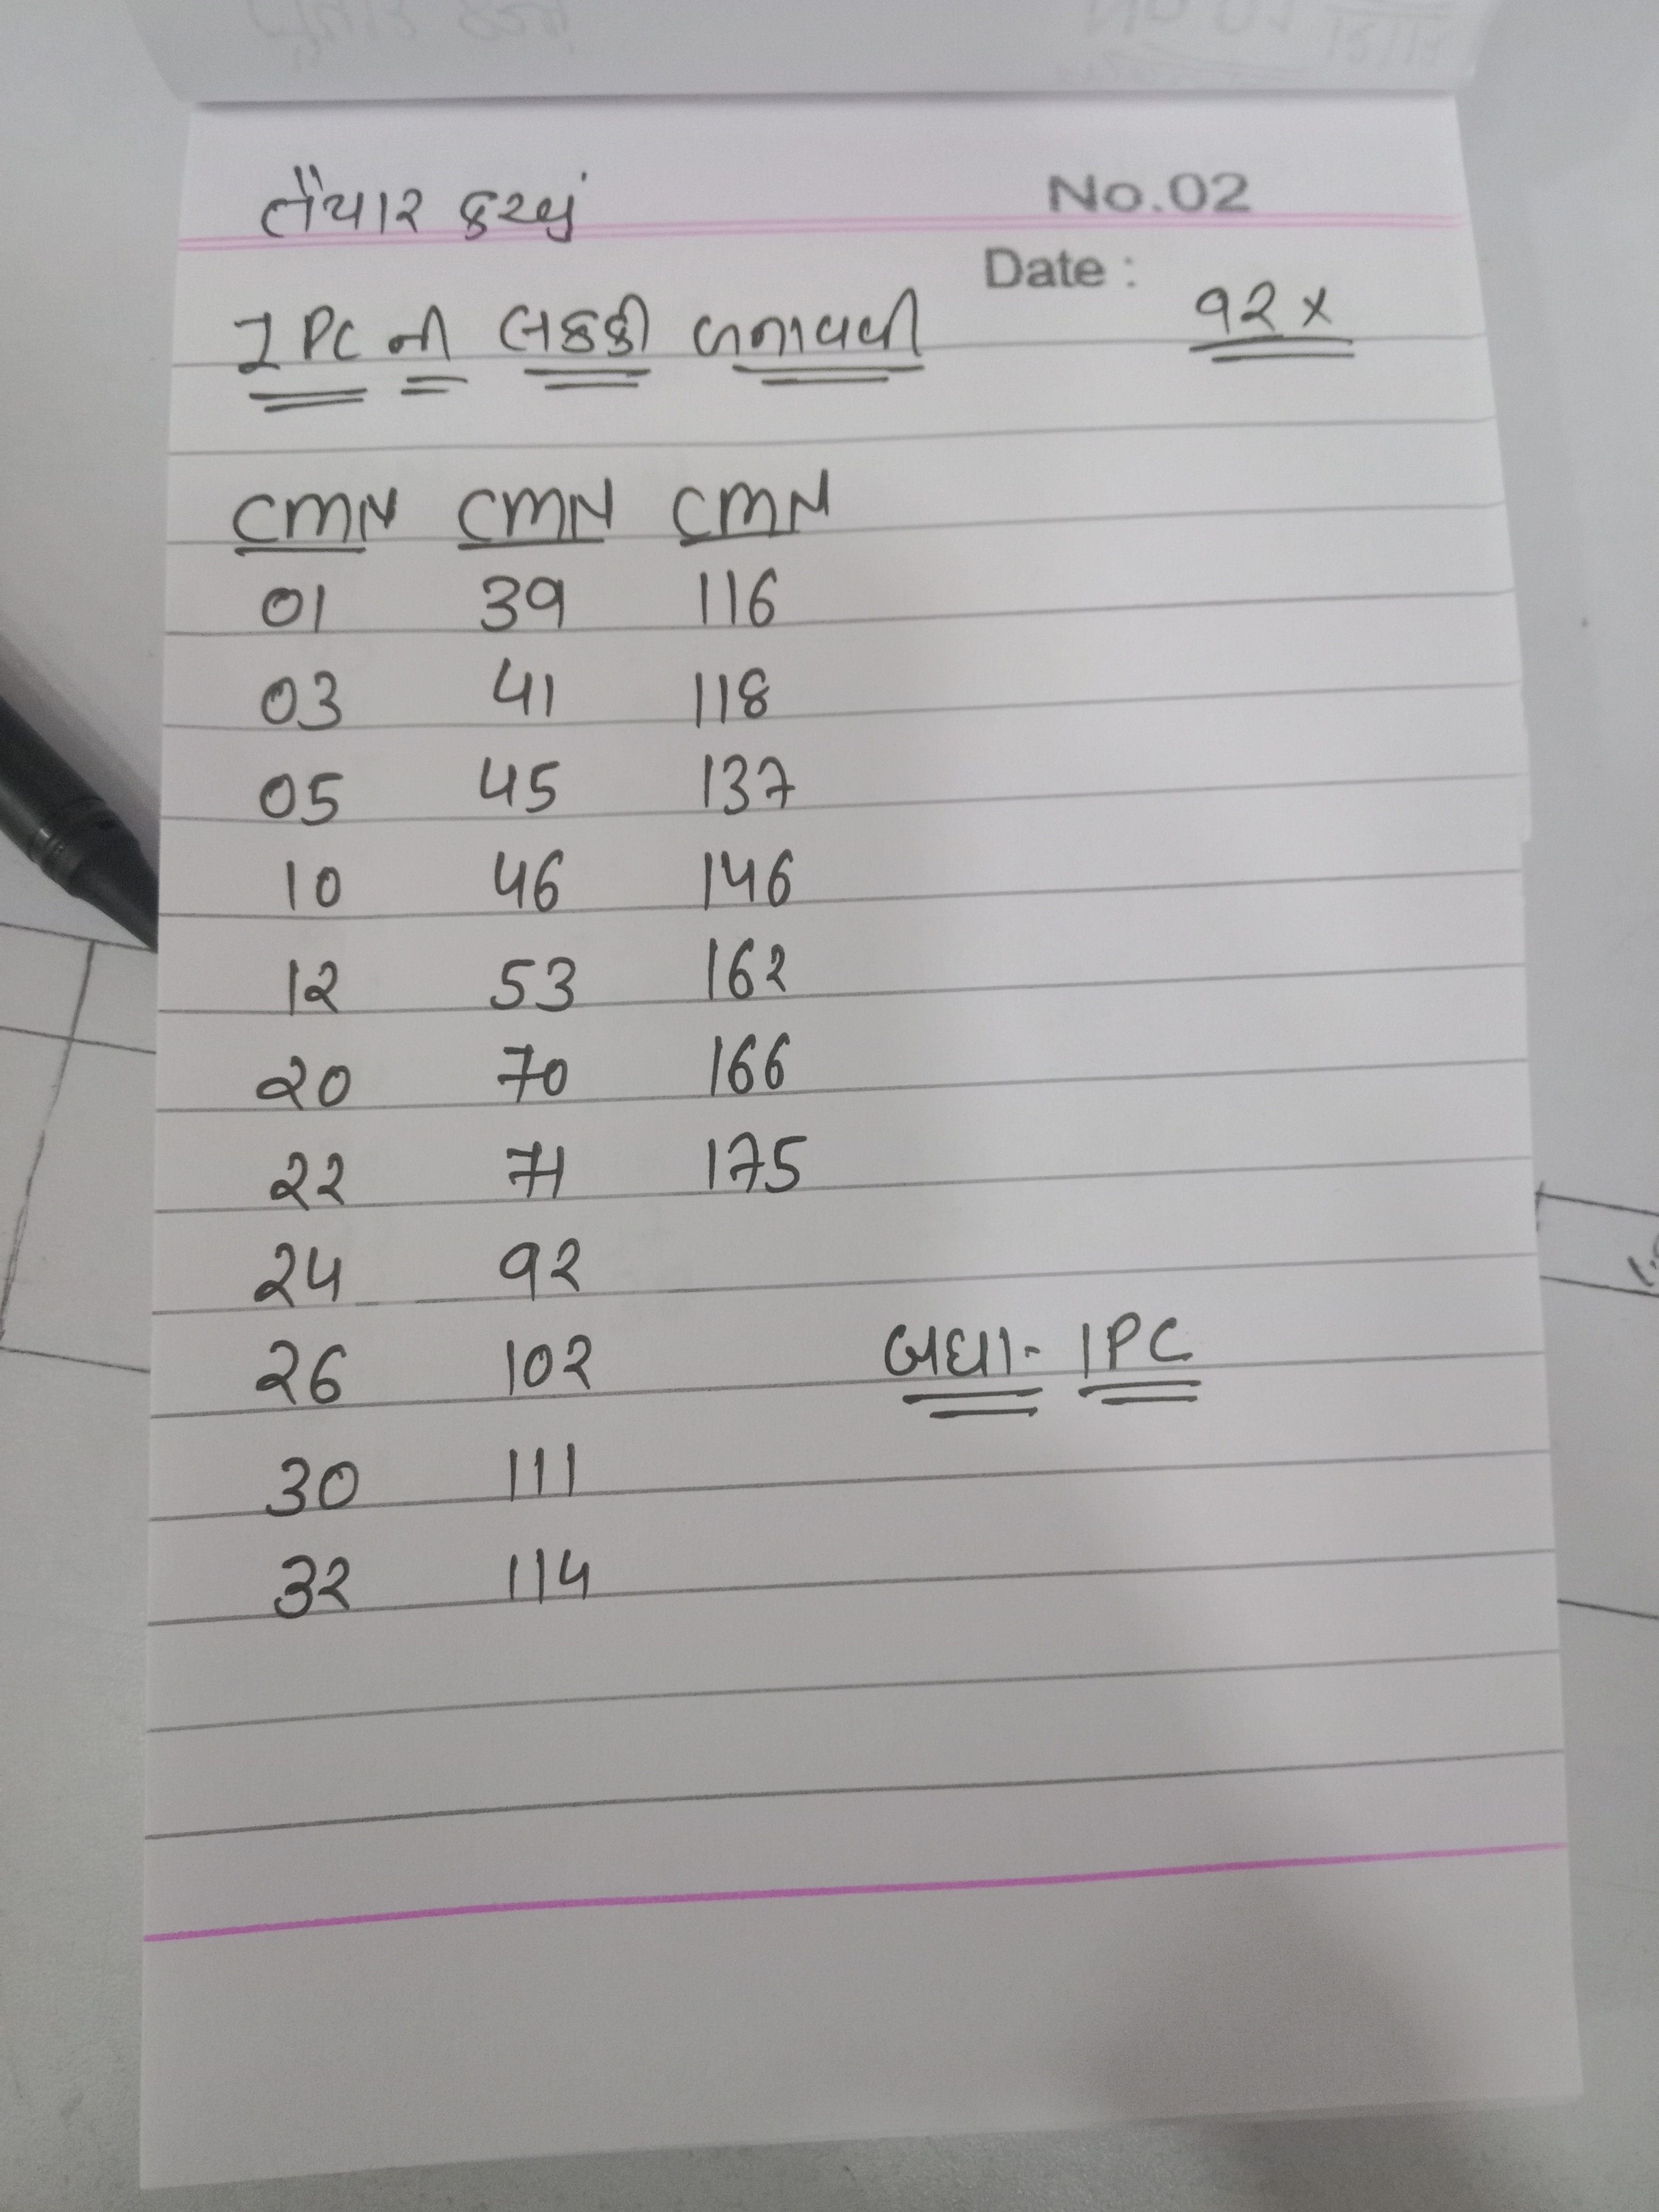 તૈયાર કરવું
No.02
Date :
1 PC ની લકકી બનાવવી 92 x
CMN CMN CMN
01 39 116
03 41 118
05 45 137
10 46 146
12 53 162
20 70 166
22 71 175
24 92
26 102
બધા- 1PC
30 111
32 114